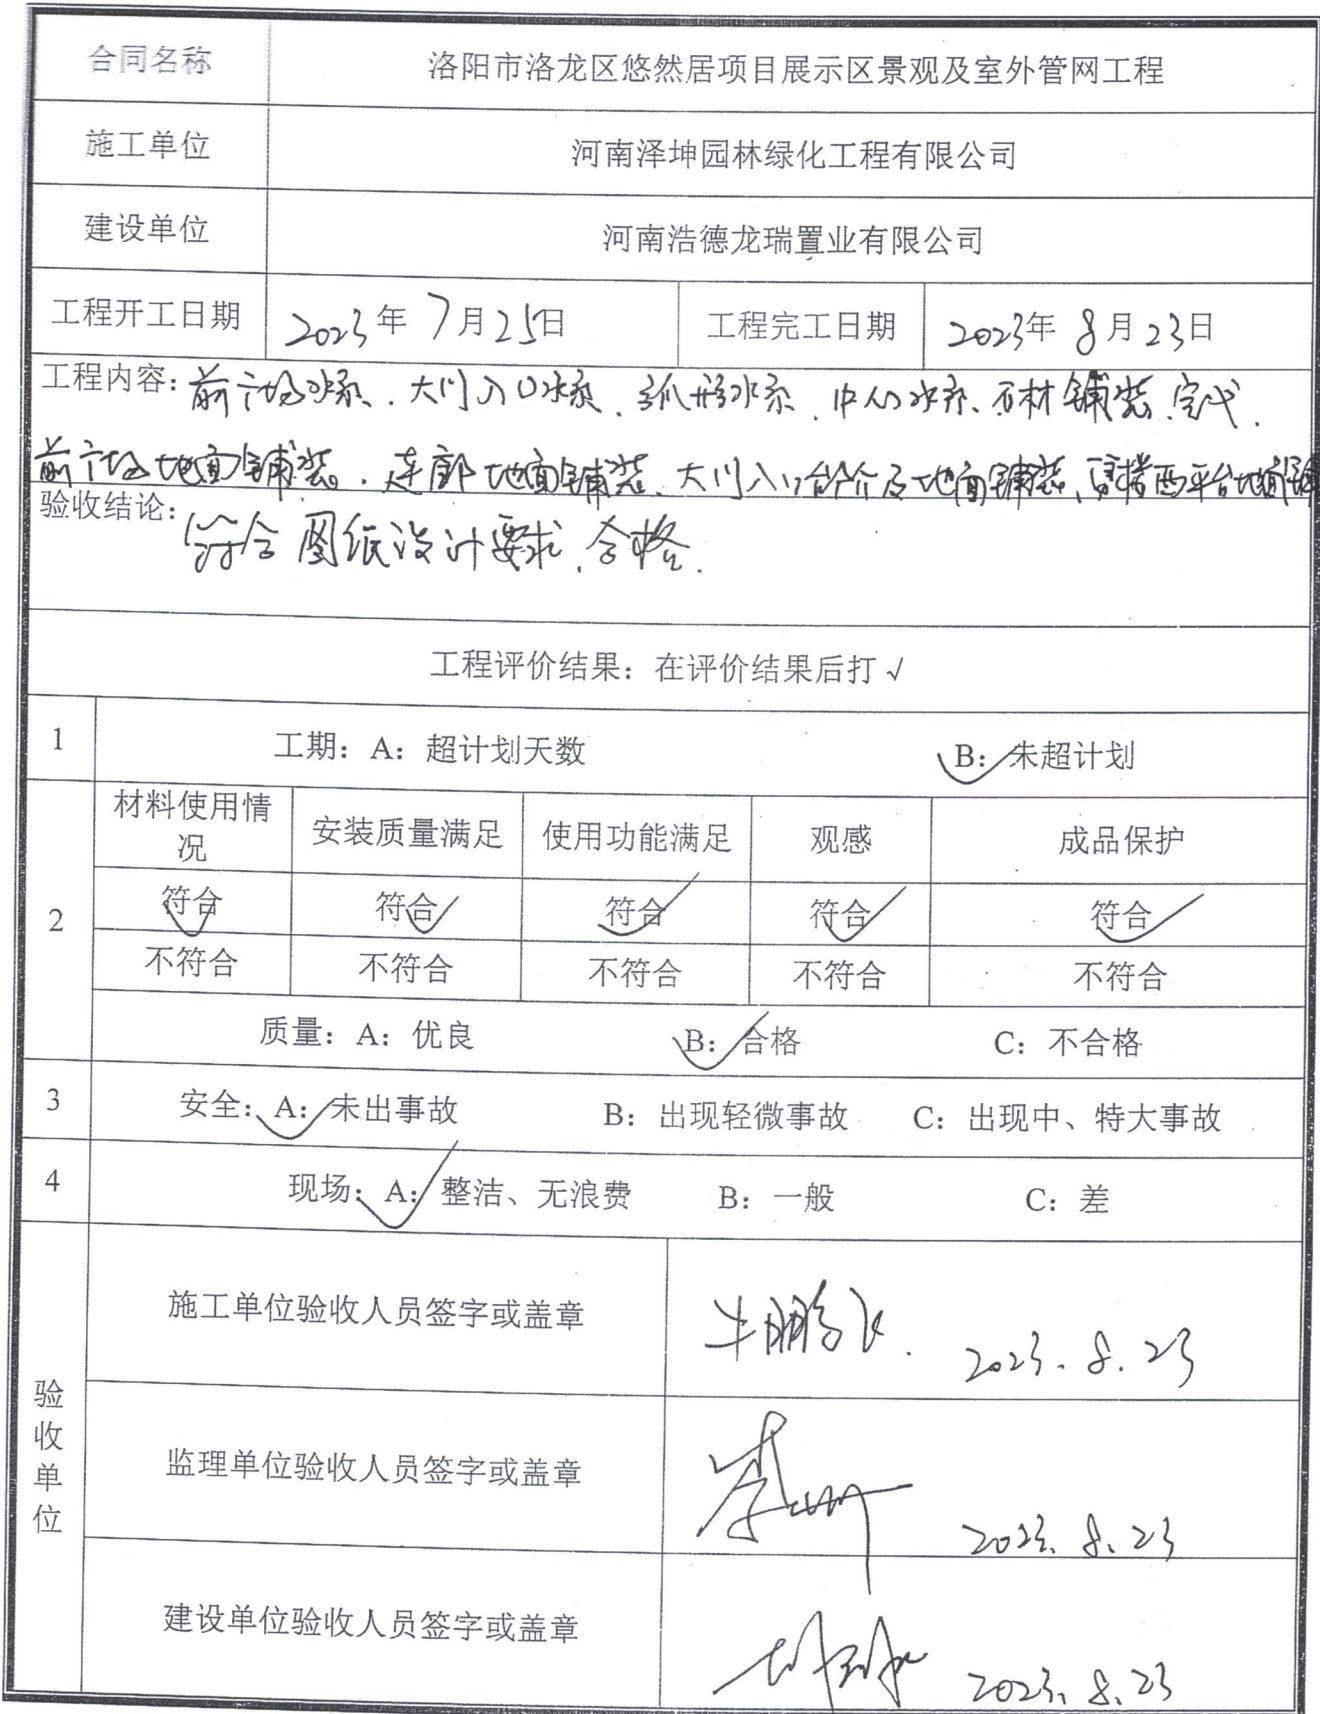 合同名称 洛阳市洛龙区悠然居项目展示区景观及室外管网工程
施工单位 河南泽坤园林绿化工程有限公司
建设单位 河南浩德龙瑞置业有限公司
工程开工日期 2023年 7月25日 工程完工日期 2023年 8月23日
工程内容：前广场水系、大门入口水系、弧形水系、中心水系、石材铺装完成、
前广场地面铺装、连廊地面铺装、大门入口台阶及地面铺装、西平台地面
验收结论：符合图纸设计要求、合格.
工程评价结果：在评价结果后打√
1 工期：A：超计划天数 B：未超计划
2 材料使用情况 安装质量满足 使用功能满足 观感 成品保护
符合 符合 符合 符合 符合
不符合 不符合 不符合 不符合 不符合
质量：A：优良 B：合格 C：不合格
3 安全：A：未出事故 B：出现轻微事故 C：出现中、特大事故
4 现场：A：整洁、无浪费 B：一般 C：差
验收单位
施工单位验收人员签字或盖章 牛鹏飞. 2023.8.23
监理单位验收人员签字或盖章 2023.8.23
建设单位验收人员签字或盖章 2023.8.23